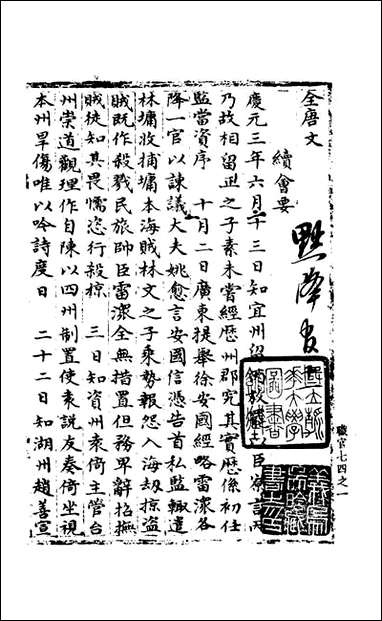 全唐文
續會要
黜降官
慶元三年六月十三日知宜州留放罷以臣寮言
乃故相留正之子素未嘗經歷州郡究其實歷係初任
監當資序 十月二日廣東提舉徐安國經略雷潨各
降一官以諫議大夫姚愈言安國信憑告首私監輒遣
林墉收捕墉本海賊林文之子乘勢報怨入海刼掠盜
賊既作殺戮民旅帥臣雷潨全無措置但務卑辭招撫
賊徒知其畏懦恣行殺掠 三日知資州袁倚主管台
州崇道觀理作自陳以四州制置使袁說友奏倚坐視
本州旱傷唯以吟詩度日 二十二日知湖州趙善宣
職官七四之一